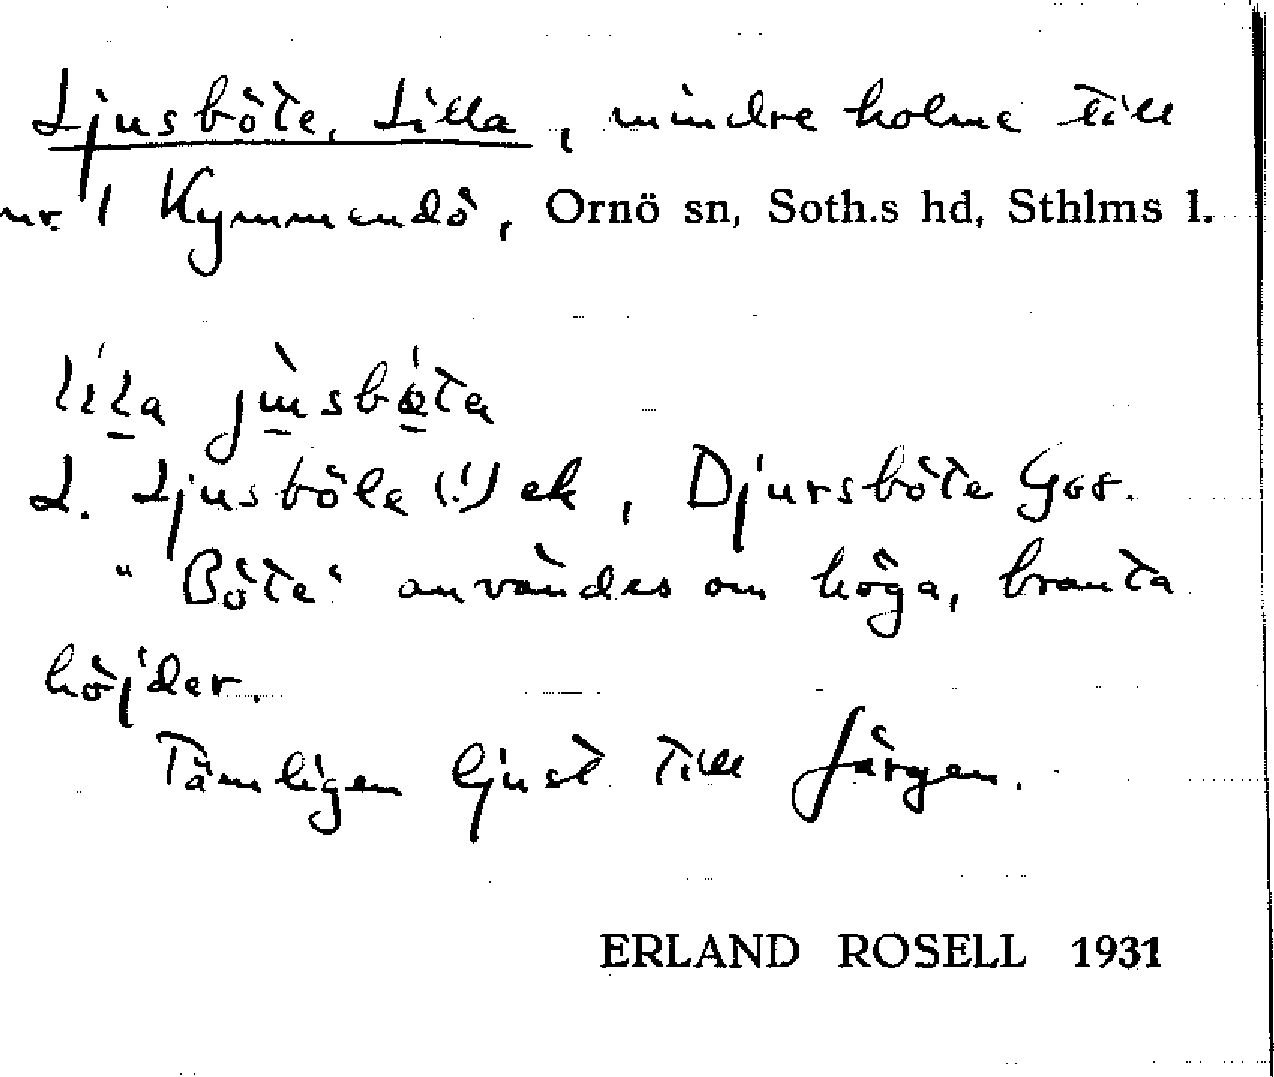 Ljusböte, Lilla, mindre holme till
nr. 1 Kymmendö, Ornö sn, Soth.s hd, Sthlms l.
lila jùsbǿta
L. Ljusböle (!) ek, Djursböte Gs8.
"Böte" användes om höga, branta
höjder.
Tämligen ljust till färgen.
ERLAND ROSELL 1931